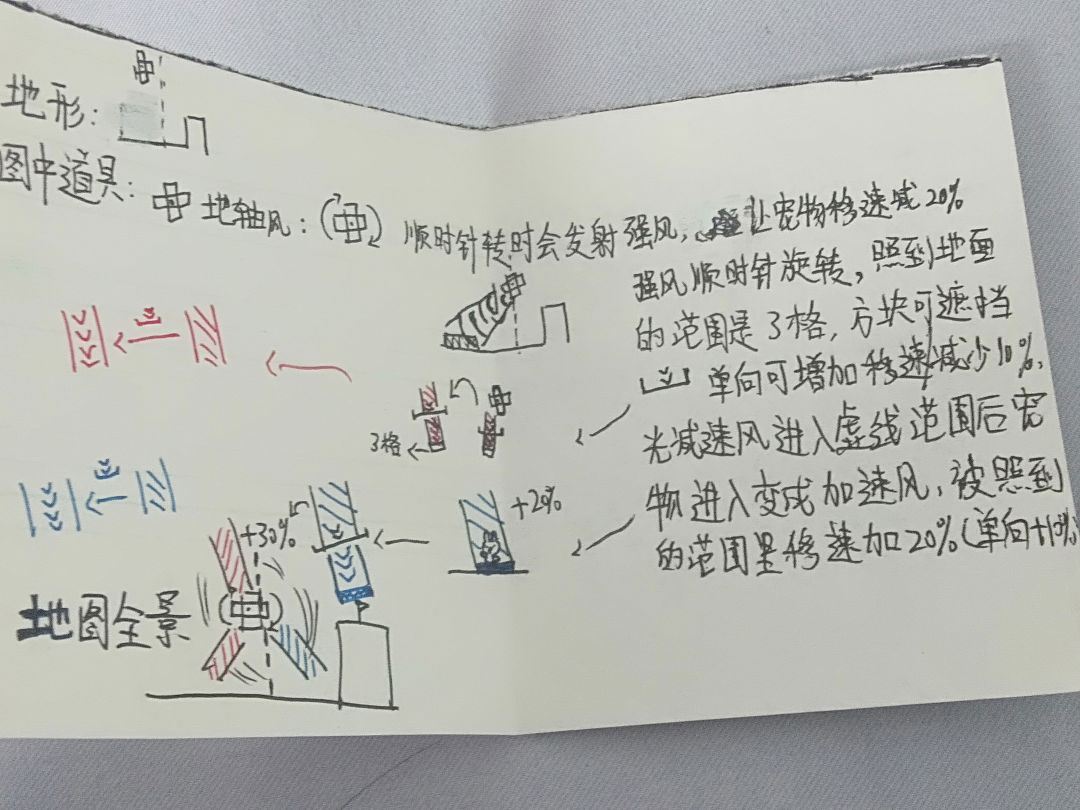 地形：
图中道具：
地轴风：
顺时针转时会发射强风，
让宠物移速减20%
强风顺时针旋转，照到地面
的范围是3格，方块可遮挡
单向可增加移速减少10%，
光减速风进入虚线范围后宠
物进入变成加速风，被照到
的范围里移速加20%(单向+10%)
3格
+20%
+30%
地图全景